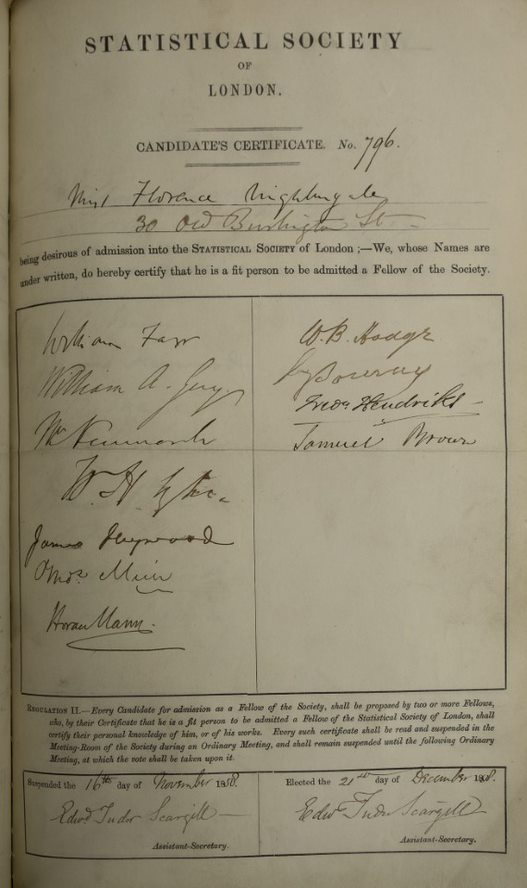 STATISTICAL SOCIETY
OF
LONDON.
CANDIDATE'S CERTIFICATE. No. 796.
Miss Florence Nightingale
30 Old Burlington St
being desirous of admission into the STATISTICAL SOCIETY of London ;—We, whose Names are
under written, do hereby certify that he is a fit person to be admitted a Fellow of the Society.
William Farr
William A. Guy
Wm Newmarch
W. H. Sykes
James Heywood
Thos. Muir
Horace Mann.
W. B. Hodge
Fredk Hendriks
Samuel Brown
REGULATION II.—Every Candidate for admission as a Fellow of the Society, shall be proposed by two or more Fellows,
who, by their Certificate that he is a fit person to be admitted a Fellow of the Statistical Society of London, shall
certify their personal knowledge of him, or of his works. Every such certificate shall be read and suspended in the
Meeting-Room of the Society during an Ordinary Meeting, and shall remain suspended until the following Ordinary
Meeting, at which the vote shall be taken upon it.
Suspended the 16th day of November 1858.
Edwd Tudor Scargill
Assistant-Secretary.
Elected the 21st day of December 1858.
Edwd Tudor Scargill
Assistant-Secretary.